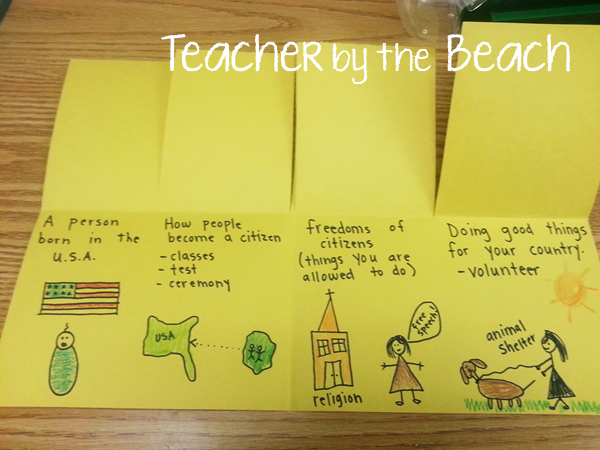 Teacher by the Beach
A person
born in the
U.S.A.
How people
become a citizen
- classes
- test
- ceremony
USA
freedoms of
citizens
(things you are
allowed to do)
free
speech!
religion
Doing good things
for your country.
- volunteer
animal
shelter